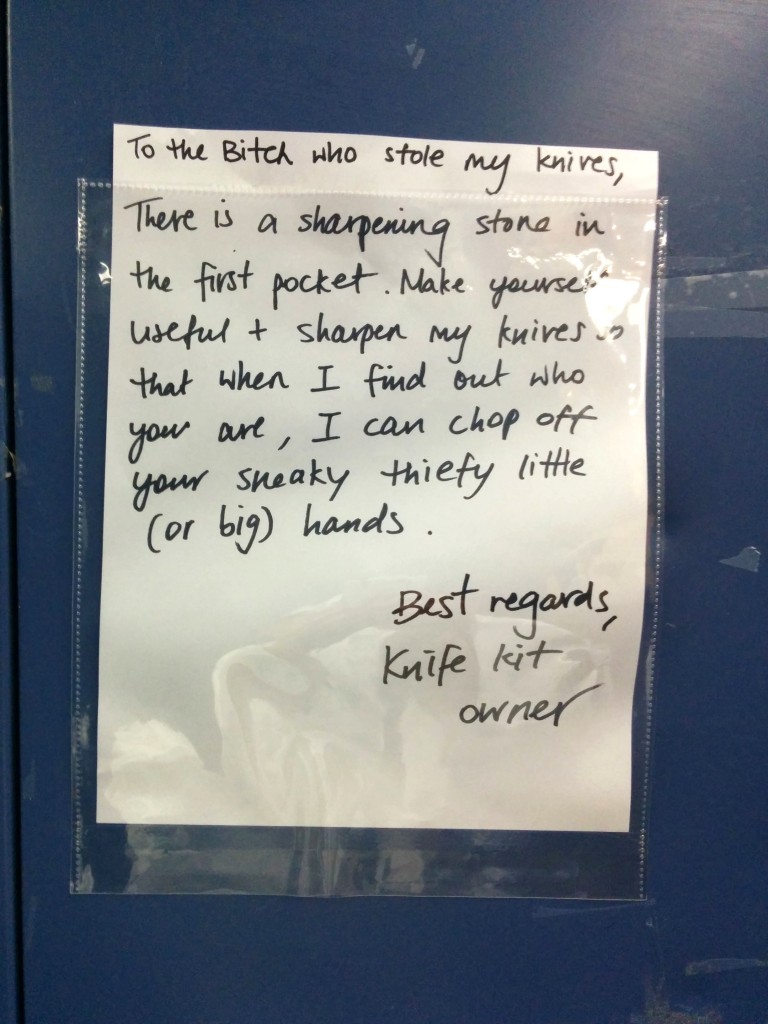 To the Bitch who stole my knives,
There is a sharpening stone in
the first pocket. Make yourself
useful + sharpen my knives so
that when I find out who
you are, I can chop off
your sneaky thiefy little
(or big) hands.
Best regards,
Knife kit
owner